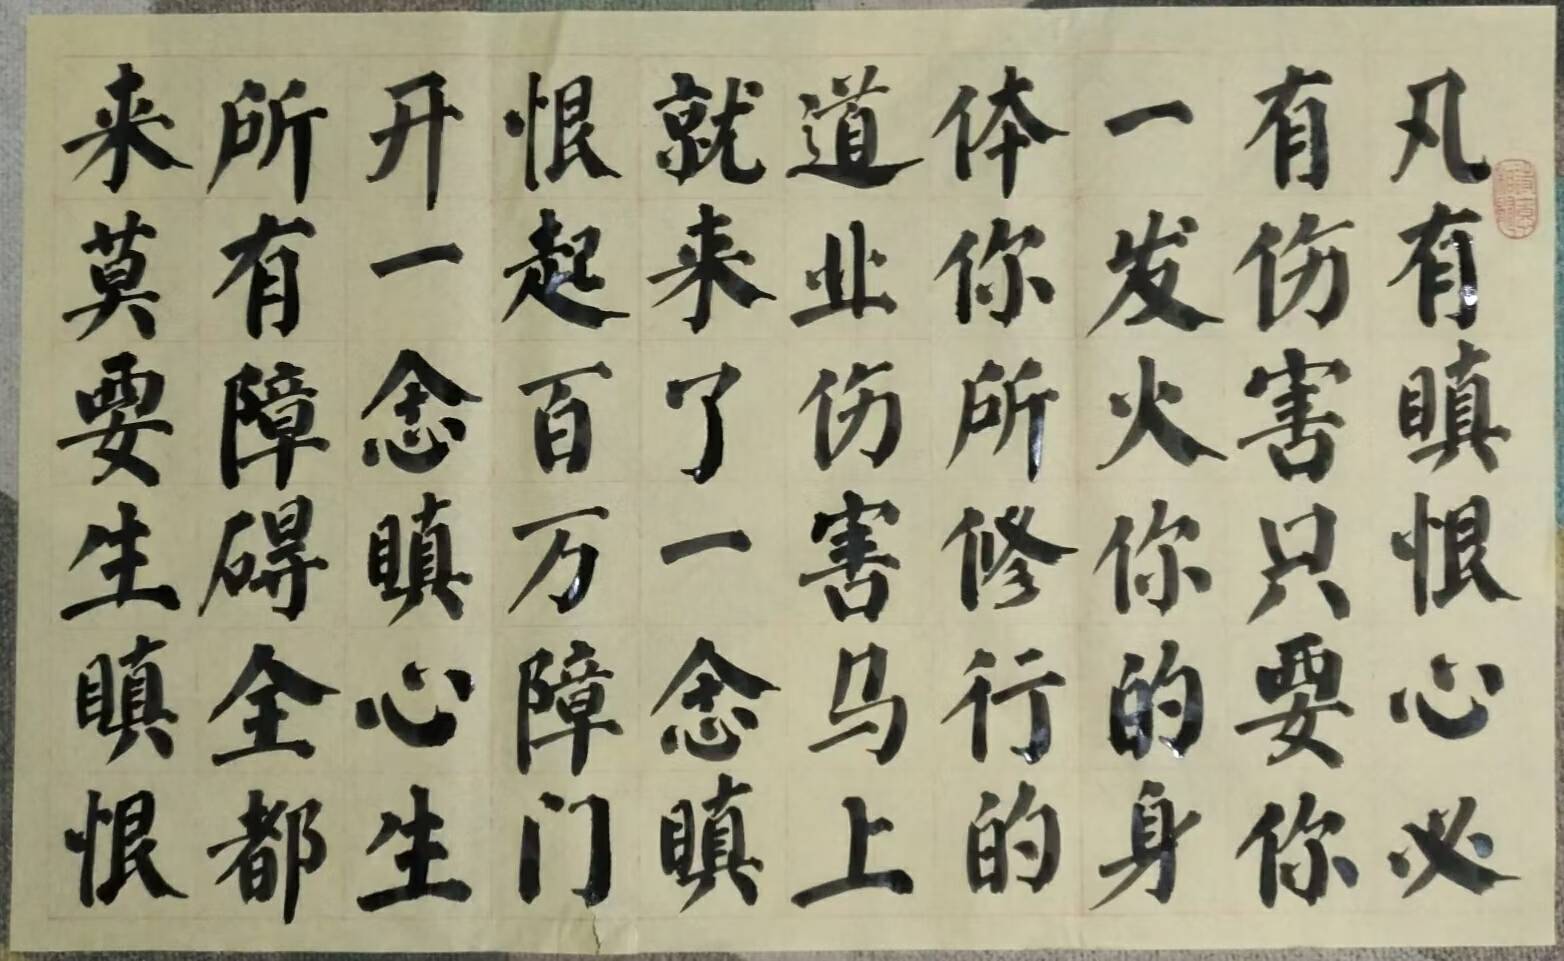 凡有瞋恨心必
有伤害只要你
一发火你的身
体你所修行的
道业伤害马上
就来了一念瞋
恨起百万障门
开一念瞋心生
所有障碍全都
来莫要生瞋恨